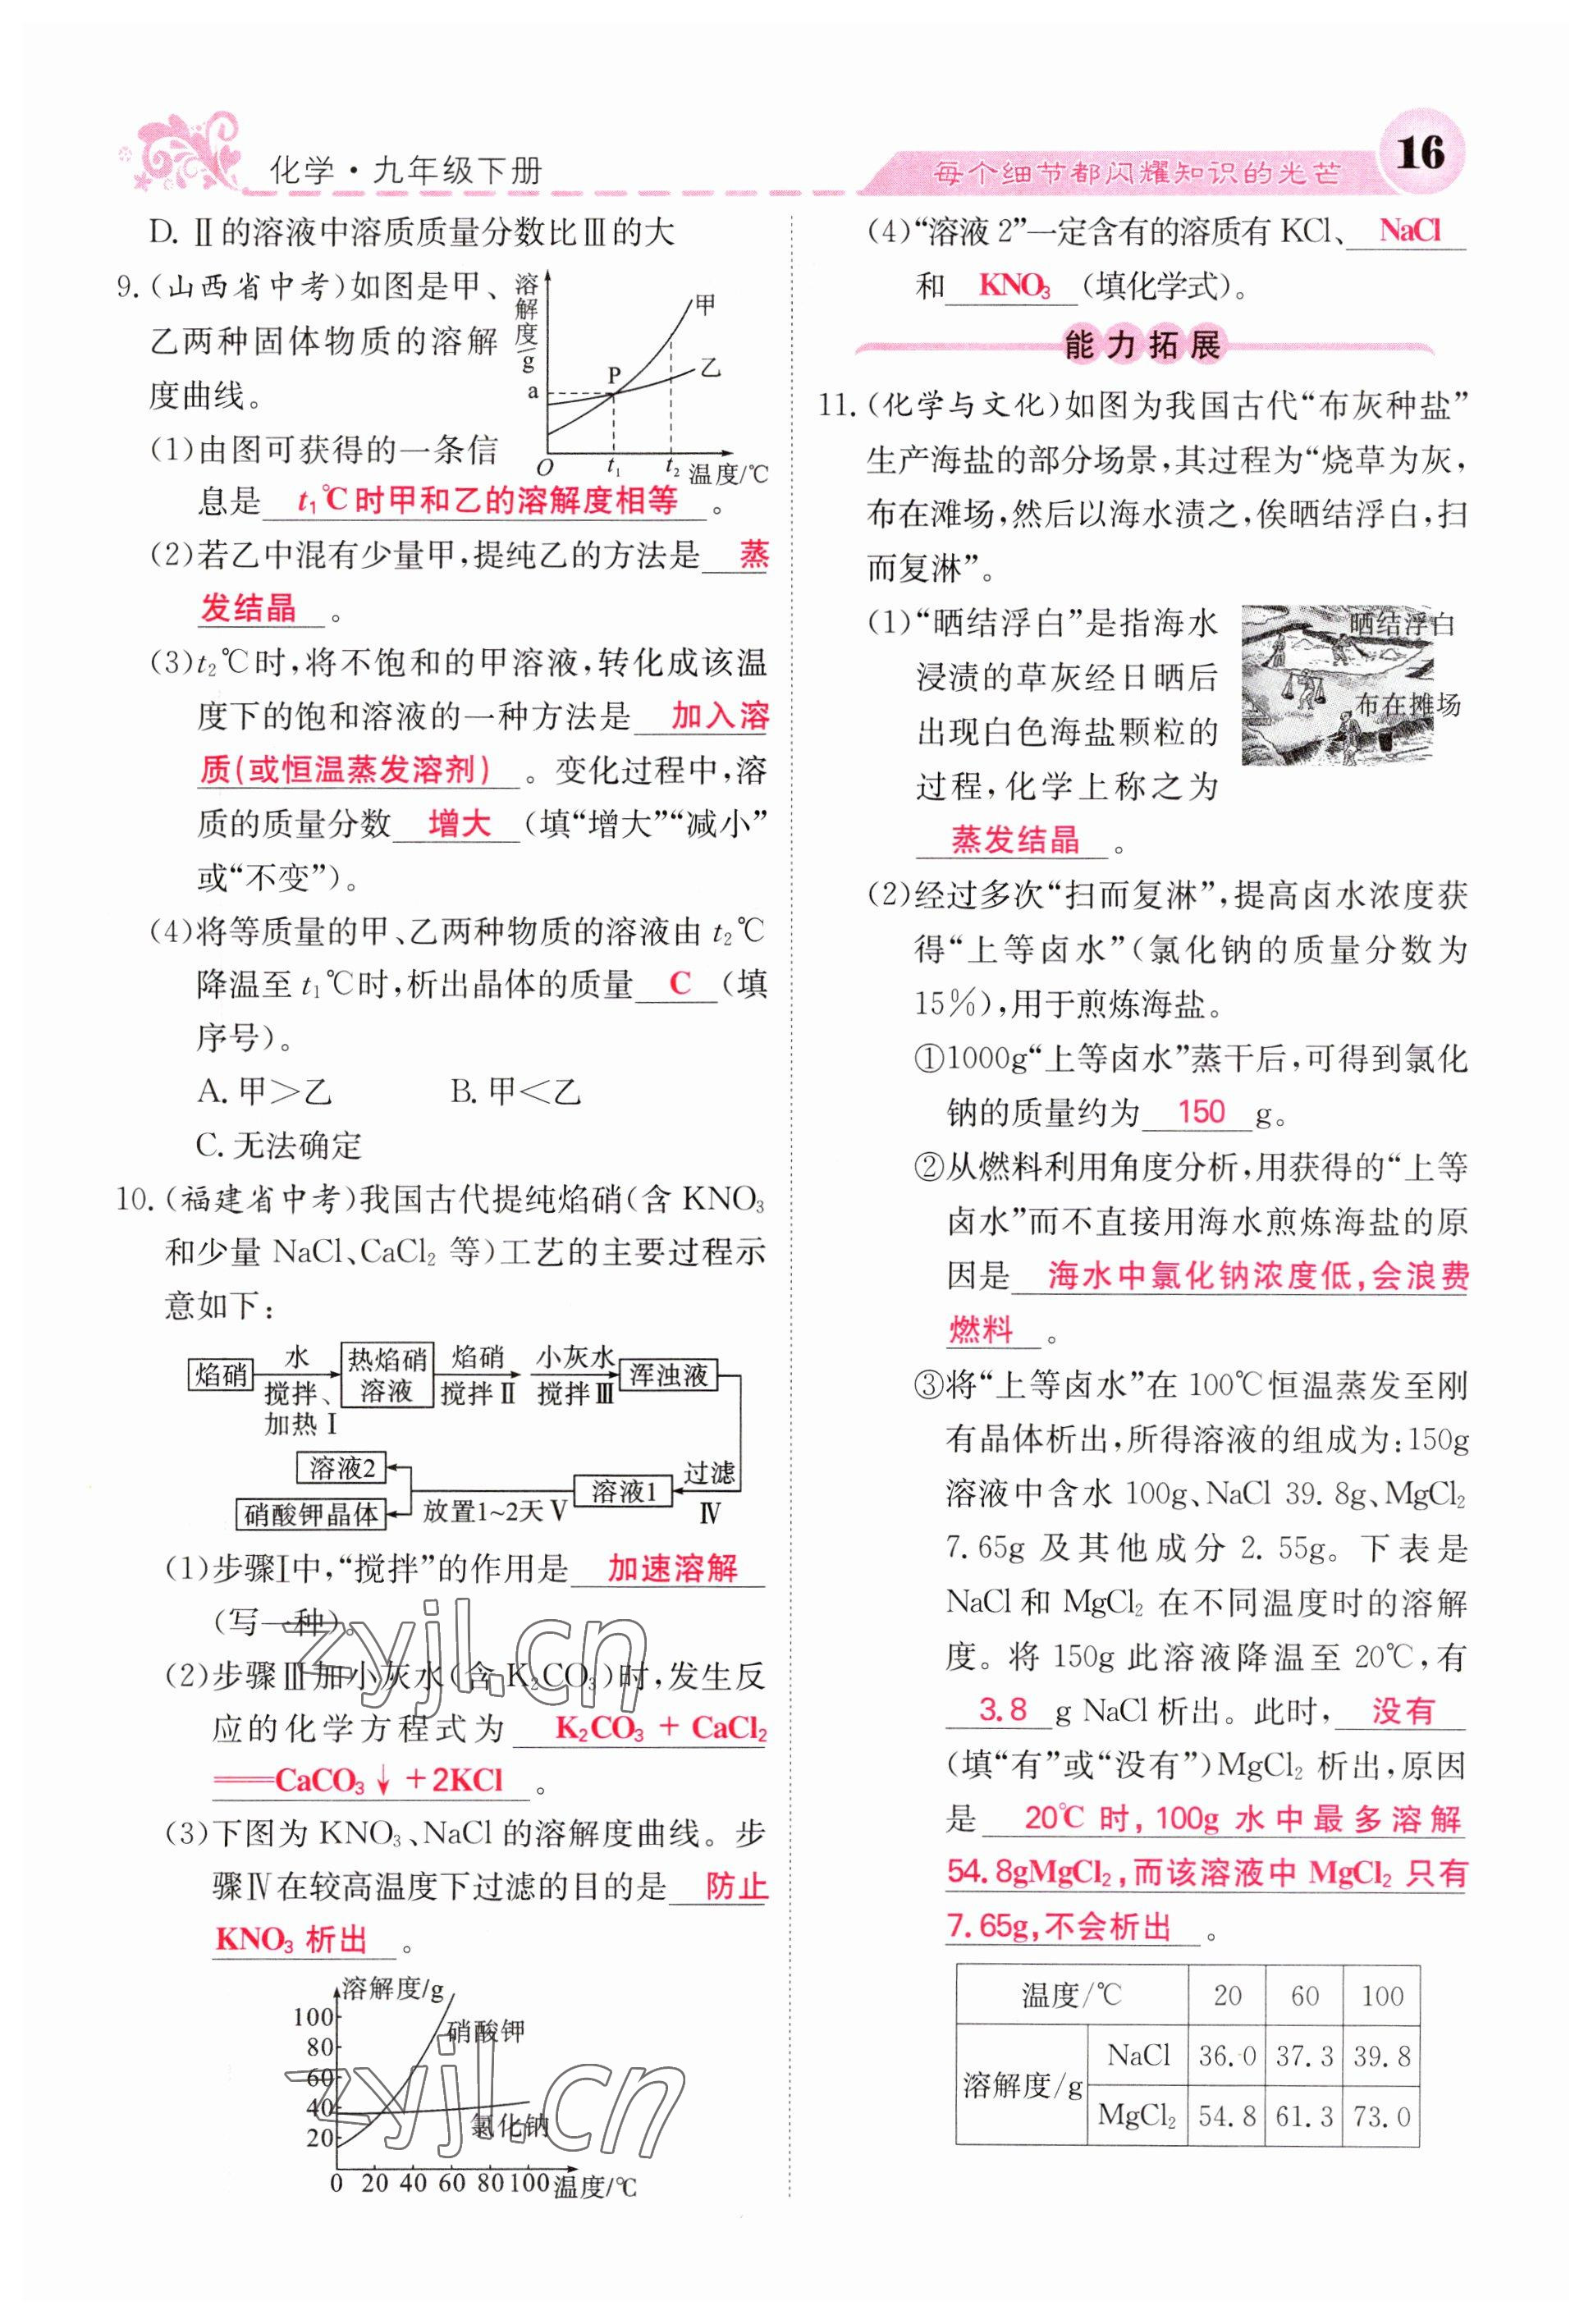 化学·九年级下册
每个细节都闪耀知识的光芒
16
D. Ⅱ的溶液中溶质质量分数比Ⅲ的大
9.(山西省中考)如图是甲、
乙两种固体物质的溶解
度曲线。
溶解度/g
甲
乙
P
a
O
t₁
t₂
温度/℃
(1)由图可获得的一条信
息是 t₁℃时甲和乙的溶解度相等 。
(2)若乙中混有少量甲,提纯乙的方法是 蒸
发结晶 。
(3)t₂℃时,将不饱和的甲溶液,转化成该温
度下的饱和溶液的一种方法是 加入溶
质(或恒温蒸发溶剂) 。变化过程中,溶
质的质量分数 增大 (填“增大”“减小”
或“不变”)。
(4)将等质量的甲、乙两种物质的溶液由 t₂℃
降温至 t₁℃时,析出晶体的质量 C (填
序号)。
A. 甲>乙 B. 甲<乙
C. 无法确定
10.(福建省中考)我国古代提纯焰硝(含 KNO₃
和少量 NaCl、CaCl₂ 等)工艺的主要过程示
意如下:
焰硝
水
搅拌、
加热Ⅰ
热焰硝
溶液
焰硝
搅拌Ⅱ
小灰水
搅拌Ⅲ
浑浊液
过滤
Ⅳ
溶液1
放置1~2天Ⅴ
溶液2
硝酸钾晶体
(1)步骤Ⅰ中,“搅拌”的作用是 加速溶解
(写一种)。
(2)步骤Ⅲ加小灰水(含 K₂CO₃)时,发生反
应的化学方程式为 K₂CO₃ + CaCl₂
══CaCO₃↓+2KCl 。
(3)下图为 KNO₃、NaCl 的溶解度曲线。步
骤Ⅳ在较高温度下过滤的目的是 防止
KNO₃ 析出 。
溶解度/g
100
80
60
40
20
硝酸钾
氯化钠
0 20 40 60 80 100 温度/℃
zyjl.cn
zyjl.cn
(4)“溶液 2”一定含有的溶质有 KCl、 NaCl
和 KNO₃ (填化学式)。
能力拓展
11.(化学与文化)如图为我国古代“布灰种盐”
生产海盐的部分场景,其过程为“烧草为灰,
布在滩场,然后以海水渍之,俟晒结浮白,扫
而复淋”。
(1)“晒结浮白”是指海水
浸渍的草灰经日晒后
出现白色海盐颗粒的
过程,化学上称之为
蒸发结晶 。
晒结浮白
布在摊场
(2)经过多次“扫而复淋”,提高卤水浓度获
得“上等卤水”(氯化钠的质量分数为
15%),用于煎炼海盐。
①1000g“上等卤水”蒸干后,可得到氯化
钠的质量约为 150 g。
②从燃料利用角度分析,用获得的“上等
卤水”而不直接用海水煎炼海盐的原
因是 海水中氯化钠浓度低,会浪费
燃料 。
③将“上等卤水”在 100℃恒温蒸发至刚
有晶体析出,所得溶液的组成为:150g
溶液中含水 100g、NaCl 39. 8g、MgCl₂
7. 65g 及其他成分 2. 55g。下表是
NaCl 和 MgCl₂ 在不同温度时的溶解
度。将 150g 此溶液降温至 20℃,有
3.8 g NaCl 析出。此时, 没有
(填“有”或“没有”)MgCl₂ 析出,原因
是 20℃ 时, 100g 水中最多溶解
54. 8gMgCl₂,而该溶液中 MgCl₂ 只有
7. 65g,不会析出 。
温度/℃ 20 60 100
溶解度/g
NaCl 36. 0 37. 3 39. 8
MgCl₂ 54. 8 61. 3 73. 0